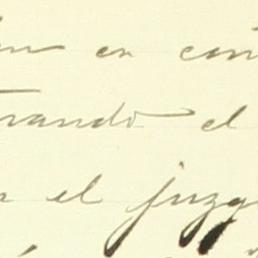 en con
trando el
el juzg